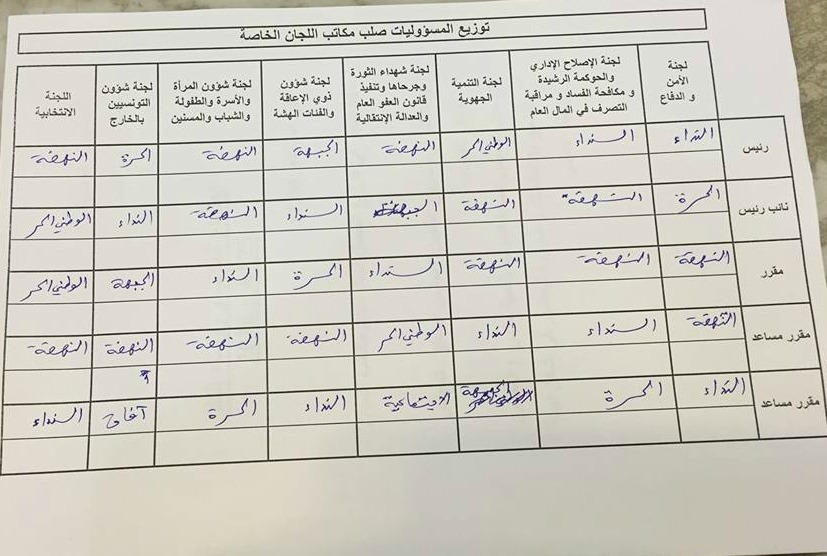 توزيع المسؤوليات صلب مكاتب اللجان الخاصة
لجنة
الأمن
و الدفاع
لجنة الإصلاح الإداري
والحوكمة الرشيدة
و مكافحة الفساد و مراقبة
التصرف في المال العام
لجنة التنمية
الجهوية
لجنة شهداء الثورة
وجرحاها وتنفيذ
قانون العفو العام
والعدالة الإنتقالية
لجنة شؤون
ذوي الإعاقة
والفئات الهشة
لجنة شؤون المرأة
والأسرة والطفولة
والشباب والمسنين
لجنة شؤون
التونسيين
بالخارج
اللجنة
الانتخابية
رئيس النداء النداء الوطني الحر النهضة الجبهة النهضة الحرة النهضة
نائب رئيس الحرة النهضة النهضة الجبهة النداء النهضة النداء الوطني الحر
مقرر النهضة النهضة النهضة النداء الحرة النداء الجبهة الوطني الحر
مقرر مساعد النهضة النداء النداء الوطني الحر النهضة النهضة النهضة النهضة
مقرر مساعد النداء الحرة الجبهة الاجتماعية النداء الحرة آفاق النداء